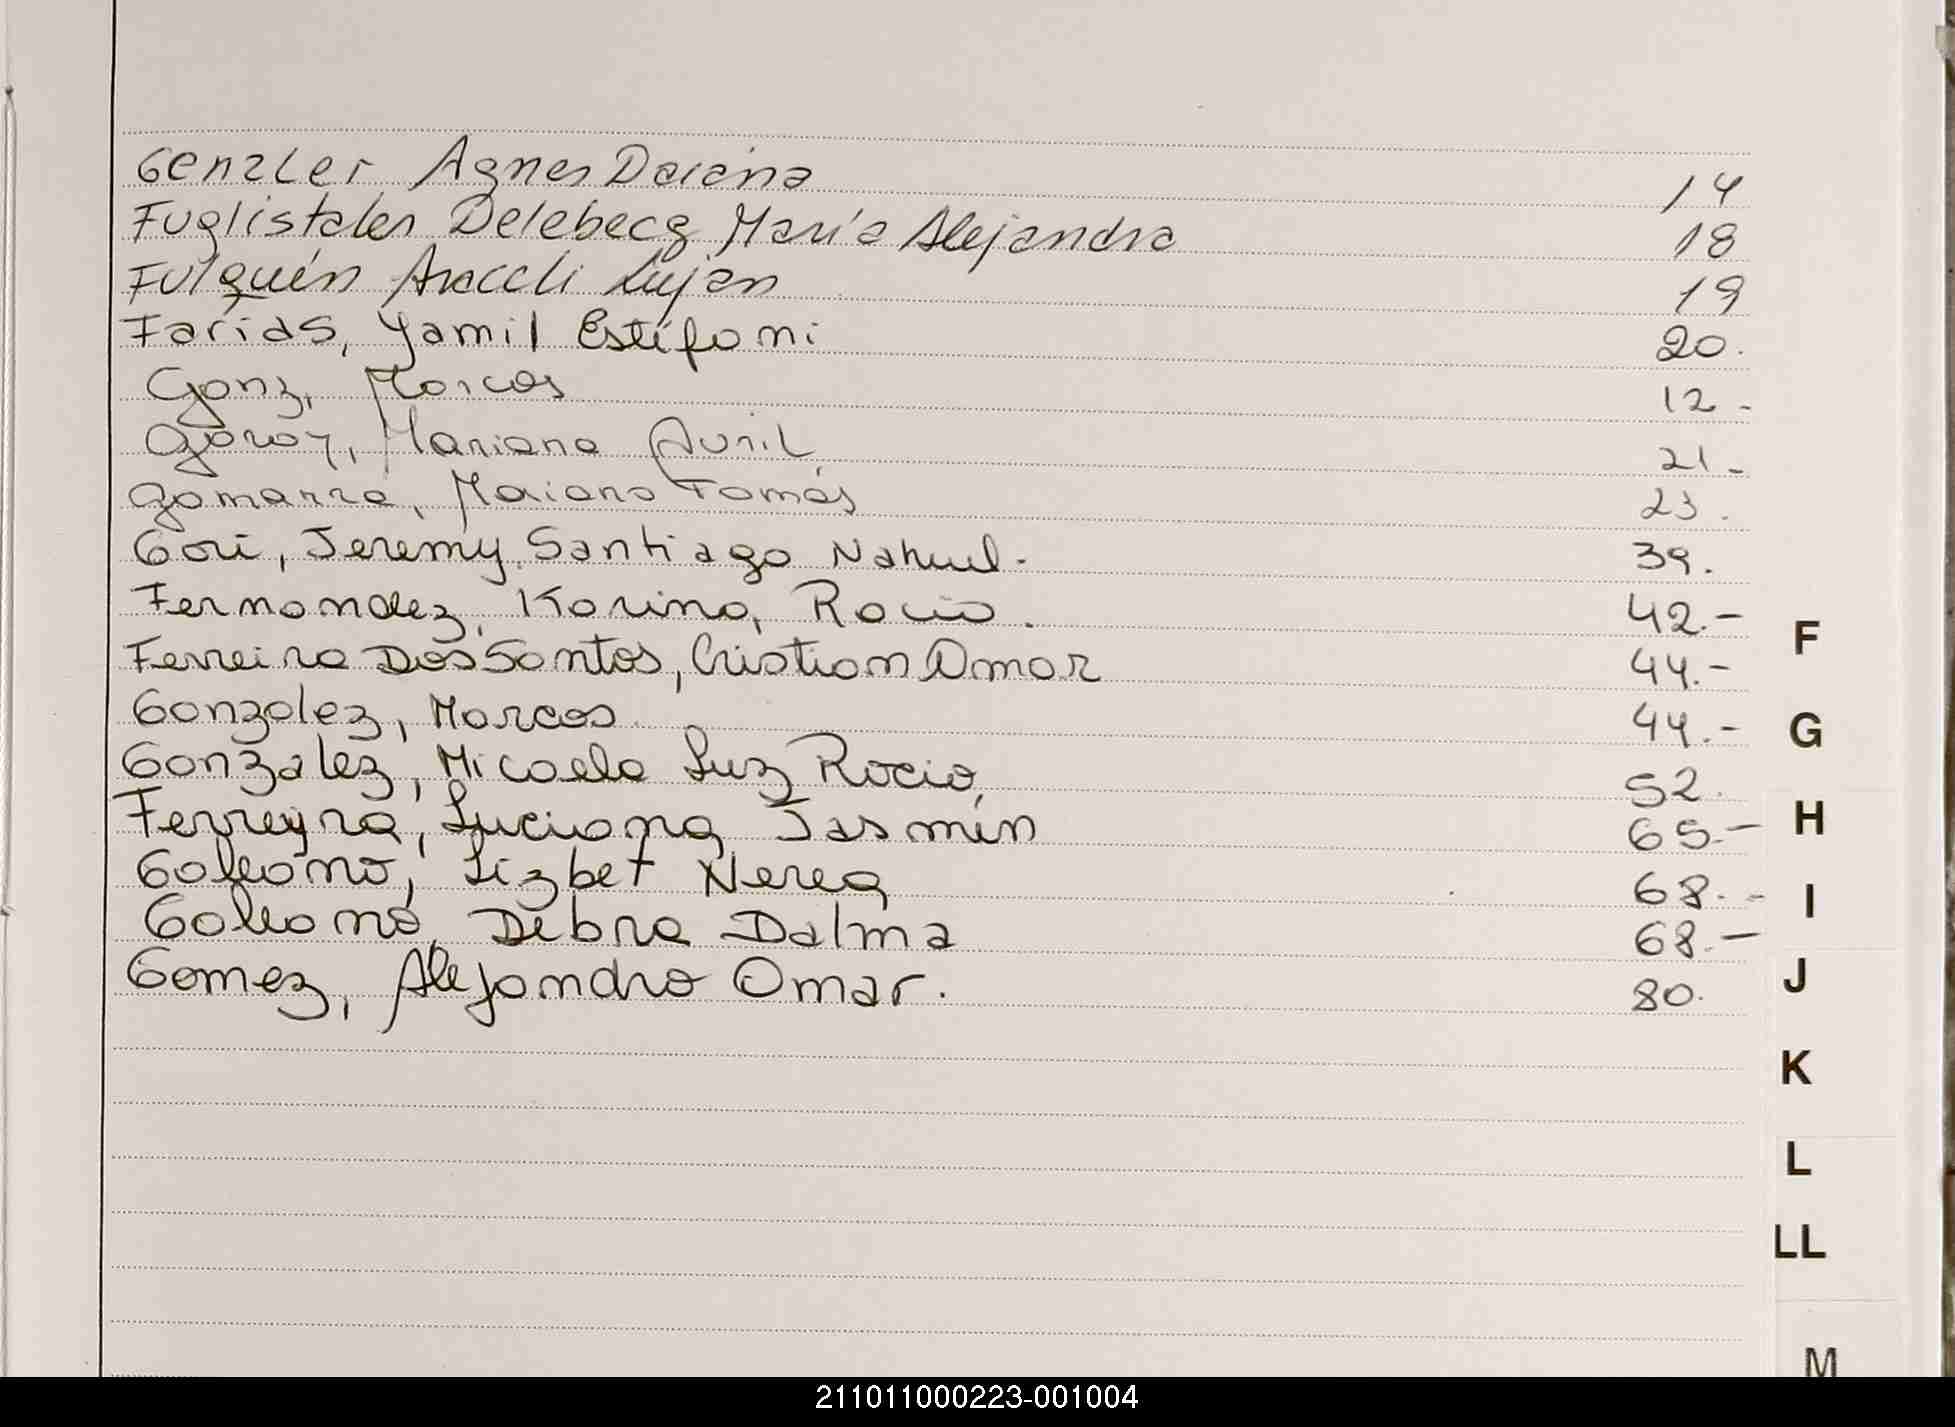 Genzler Agnes Daiana 14
Fuglistaler Delebecq María Alejandra 18
Fulquén Araceli Lujan 19
Farías, Yamil Estéfani 20.
Ganz, Marcos 12-
Garay, Mariana Avril 21-
Gamarra, Maiano Tomás 23.
Gori, Jeremy Santiago Nahuel. 39.
Fernandez, Karina, Rocio. 42.-
Ferreira Dos Santos, Cristian Omar 44.-
Gonzalez, Marcos 44.-
Gonzalez, Micaela Luz Rocio 52.
Ferreyra, Luciana Jasmín 65.-
Galeano, Lizbet Nerea 68.-
Galeano, Debra Dalma 68.-
Gomez, Alejandro Omar. 80.
F
G
H
I
J
K
L
LL
M
211011000223-001004